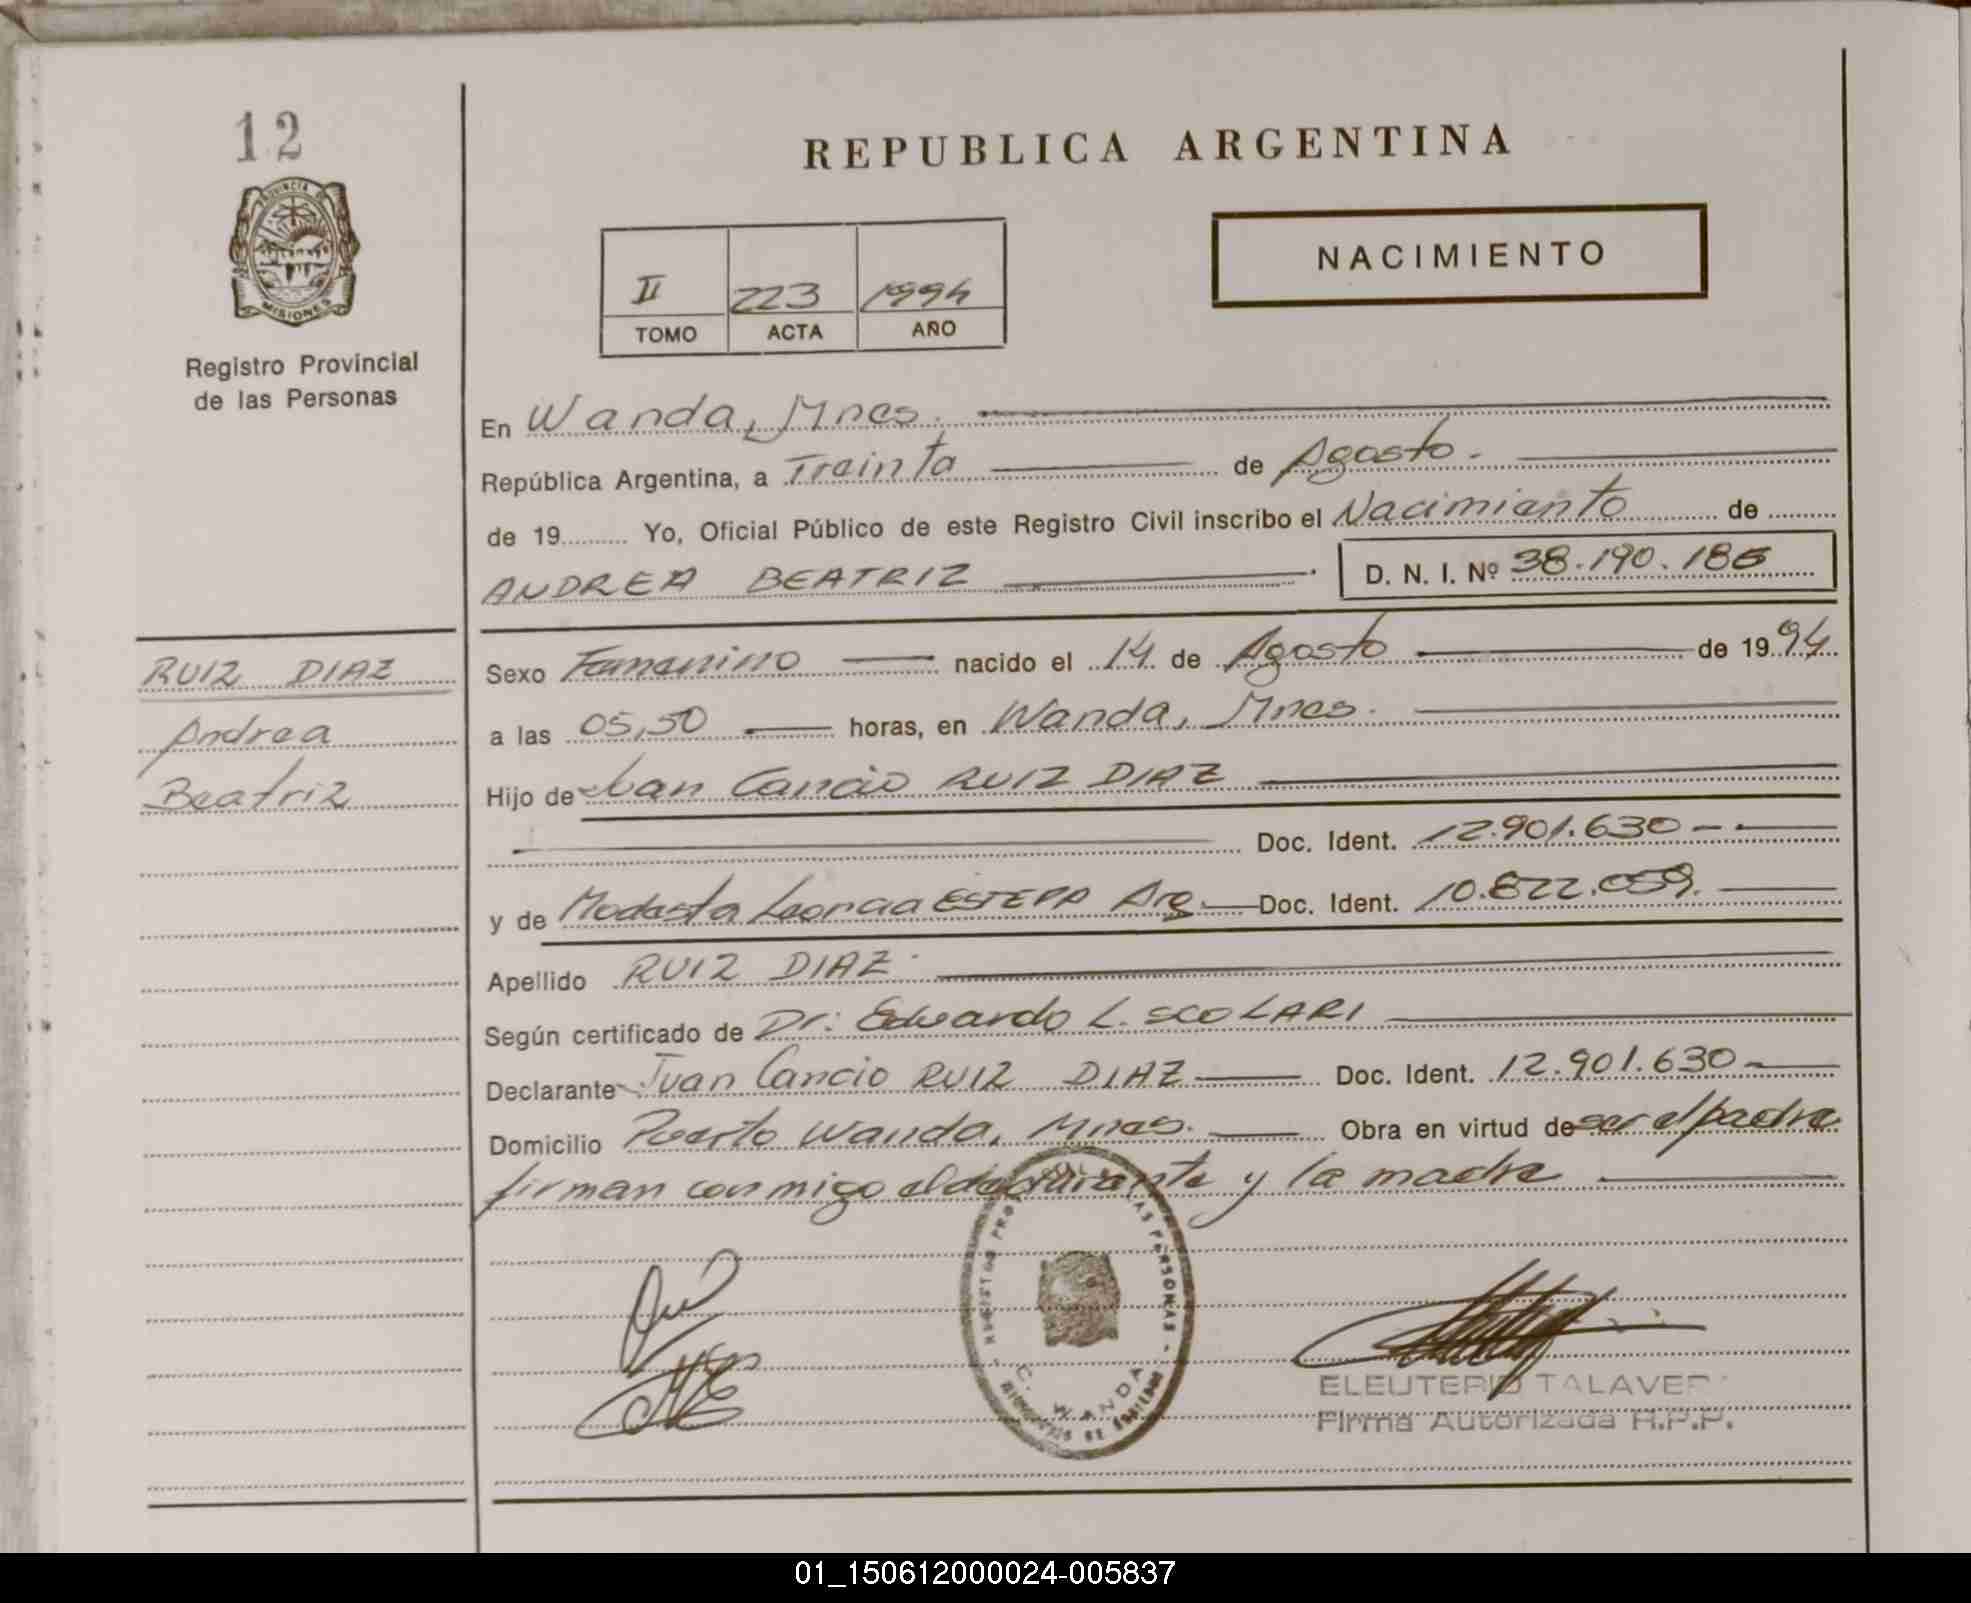 12
PROVINCIA DE
MISIONES
Registro Provincial
de las Personas
REPUBLICA ARGENTINA
NACIMIENTO
II 223 1994
TOMO ACTA AÑO
En Wanda, Mnes.
República Argentina, a Treinta de Agosto.
de 19 Yo, Oficial Público de este Registro Civil inscribo el Nacimiento de
ANDREA BEATRIZ D. N. I. Nº 38.190.186
RUIZ DIAZ
Andrea
Beatriz
Sexo Femenino nacido el 14 de Agosto de 1994
a las 05,50 horas, en Wanda, Mnes.
Hijo de Juan Cancio RUIZ DIAZ
Doc. Ident. 12.901.630
y de Modesta Leoncia ESTEPA Arg. Doc. Ident. 10.822.059.
Apellido RUIZ DIAZ
Según certificado de Dr: Eduardo L. SCOLARI
Declarante Juan Cancio RUIZ DIAZ Doc. Ident. 12.901.630
Domicilio Puerto Wanda, Mnes. Obra en virtud de ser el padre
firman conmigo el declarante y la madre
REGISTRO PROVINCIAL DE LAS PERSONAS
WANDA
ELEUTERIO TALAVERA
Firma Autorizada R.P.P.
01_150612000024-005837